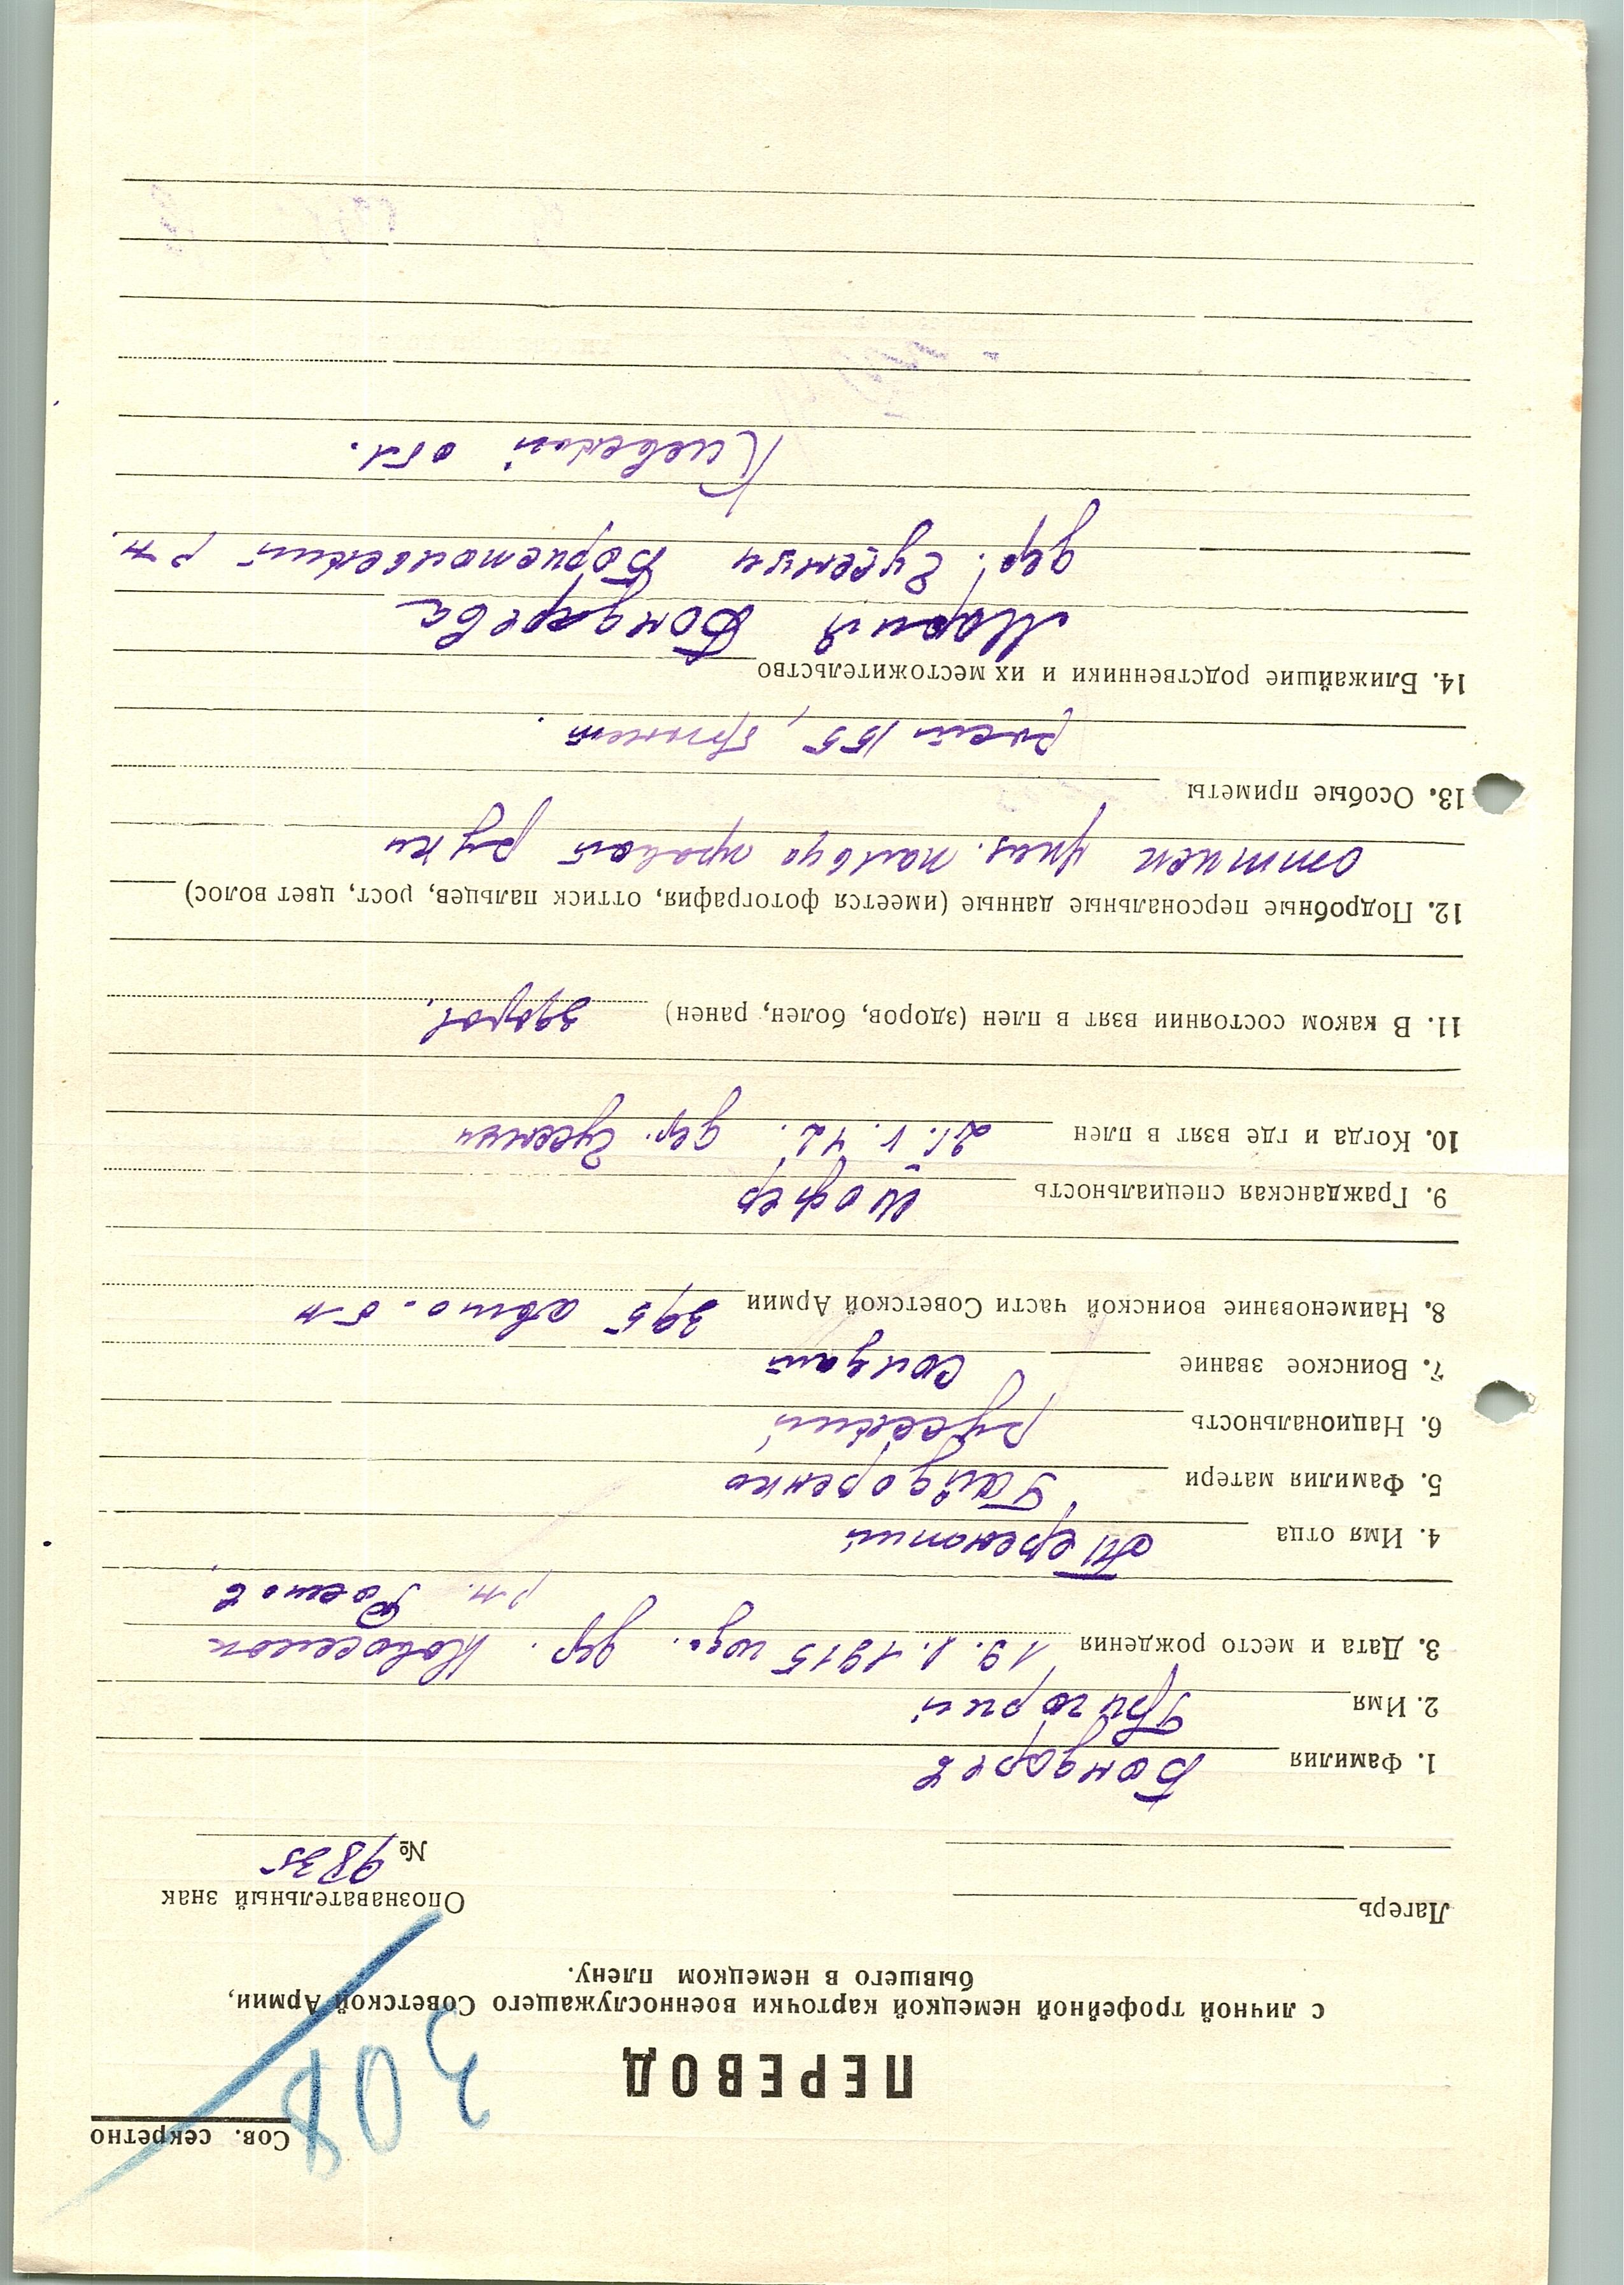 Сов. секретно
308
ПЕРЕВОД
с личной трофейной немецкой карточки военнослужащего Советской Армии,
бывшего в немецком плену.
Лагерь
Опознавательный знак
№ 9835
1. Фамилия Бондарев
2. Имя Григорий
3. Дата и место рождения 19.1.1915 дер.
рн. Ростов
4. Имя отца
5. Фамилия матери Гайдоренко
6. Национальность русский
7. Воинское звание солдат
8. Наименование воинской части Советской Армии 395 авто. б-н
9. Гражданская специальность шофер
10. Когда и где взят в плен 21.V.42. дер.
11. В каком состоянии взят в плен (здоров, болен, ранен) здоров.
12. Подробные персональные данные (имеется фотография, оттиск пальцев, рост, цвет волос)
оттиск указ. пальца правой руки
13. Особые приметы
рост 155, брюнет.
14. Ближайшие родственники и их местожительство
Мария Бондарева
дер. р-н.
Киевской обл.